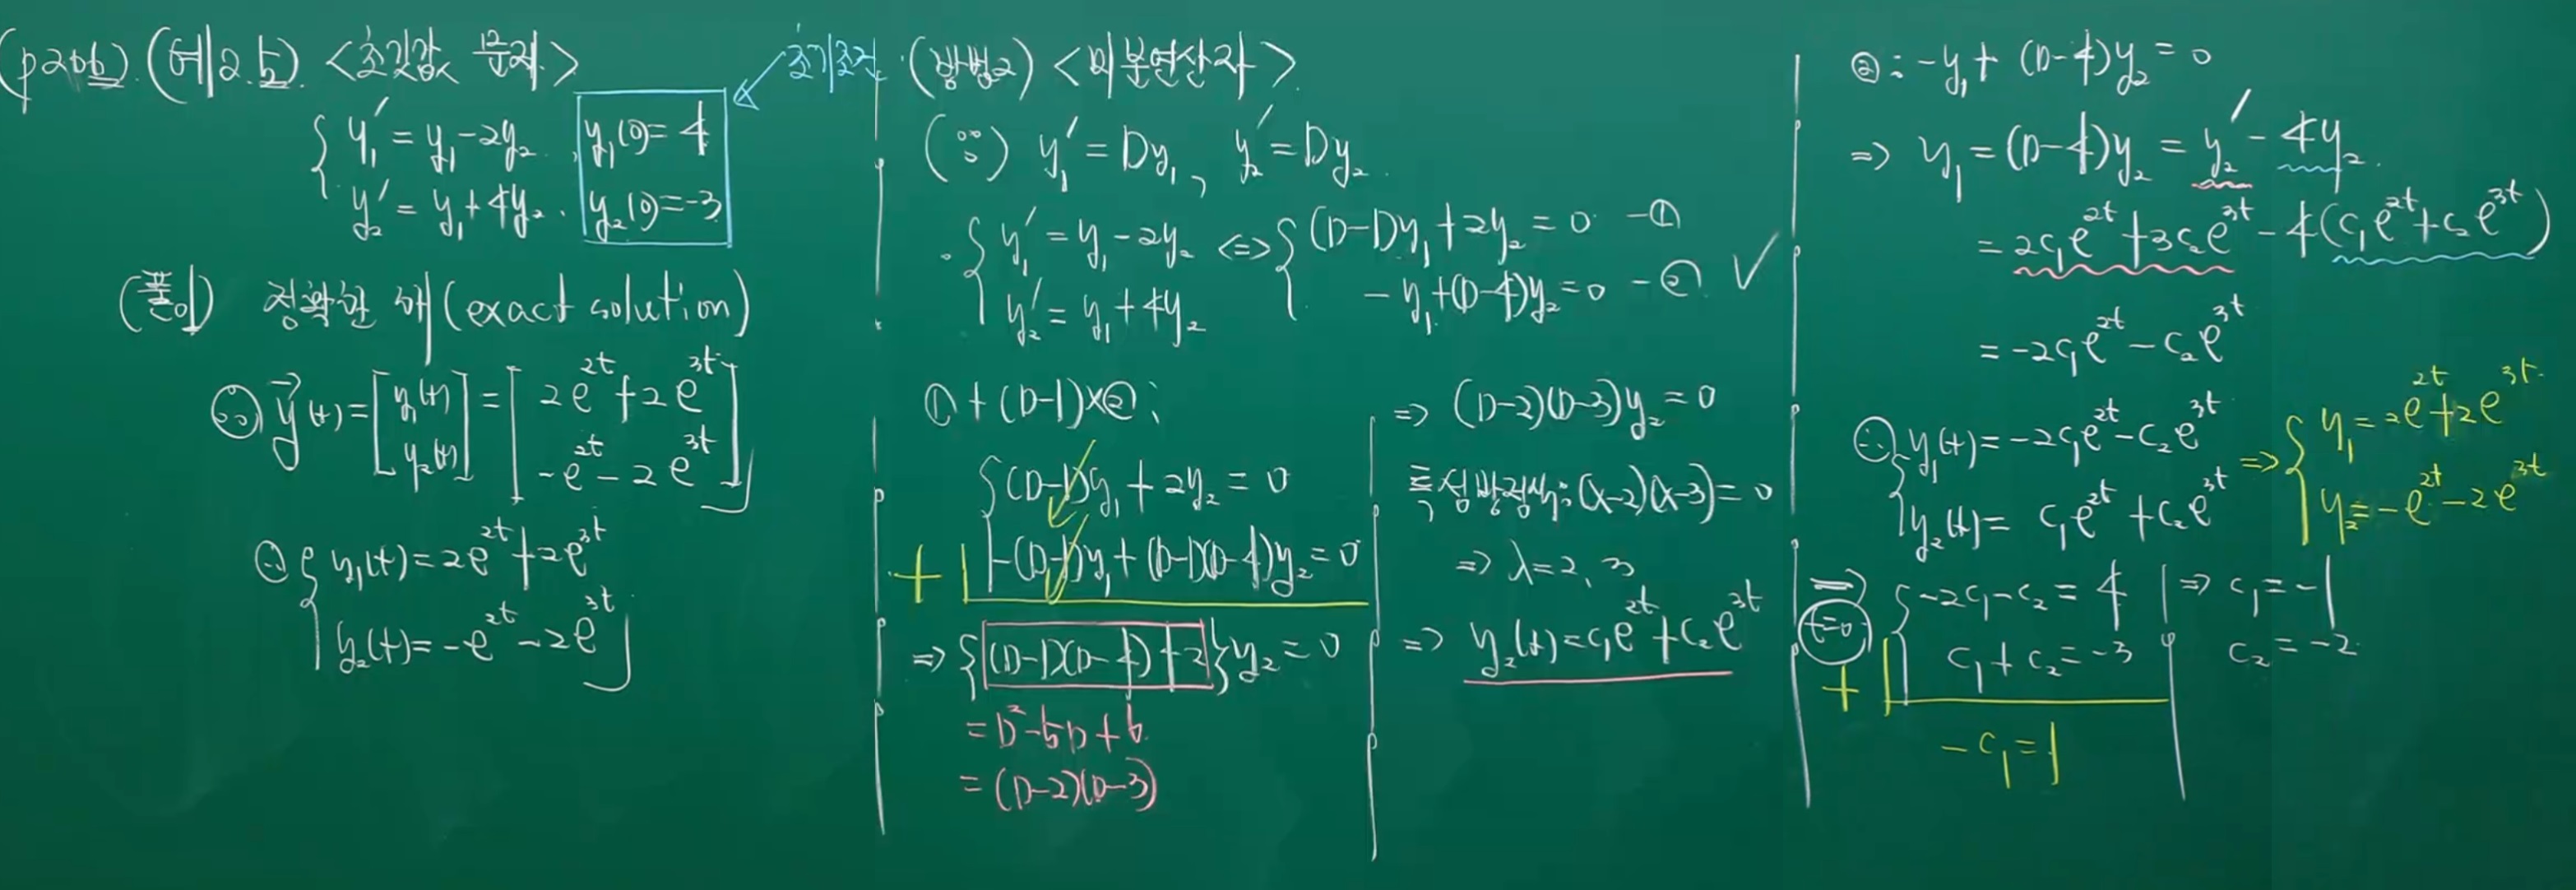 (p206) (예2.5) <초깃값 문제>
y₁' = y₁ - 2y₂ , y₁(0) = 4
y₂' = y₁ + 4y₂ . y₂(0) = -3
초기조건
(풀이) 정확한 해 (exact solution)
∴ y⃗(t) = [y₁(t) y₂(t)] = [2e^{2t} + 2e^{3t} -e^{2t} - 2e^{3t}]
∴ { y₁(t) = 2e^{2t} + 2e^{3t}
y₂(t) = -e^{2t} - 2e^{3t}
(방법2) <미분연산자>
(∵) y₁' = Dy₁, y₂' = Dy₂.
{ y₁' = y₁ - 2y₂ <=> { (D-1)y₁ + 2y₂ = 0 - ①
y₂' = y₁ + 4y₂ -y₁ + (D-4)y₂ = 0 - ② ✓
① + (D-1)×② ;
{ (D-1)y₁ + 2y₂ = 0
+ | -(D-1)y₁ + (D-1)(D-4)y₂ = 0
=> {(D-1)(D-4) + 2}y₂ = 0
= D² - 5D + 6
= (D-2)(D-3)
=> (D-2)(D-3)y₂ = 0
특성방정식: (λ-2)(λ-3) = 0
=> λ = 2, 3
=> y₂(t) = c₁e^{2t} + c₂e^{3t}
② : -y₁ + (D-4)y₂ = 0
=> y₁ = (D-4)y₂ = y₂' - 4y₂.
= 2c₁e^{2t} + 3c₂e^{3t} - 4(c₁e^{2t} + c₂e^{3t})
= -2c₁e^{2t} - c₂e^{3t}
∴ { y₁(t) = -2c₁e^{2t} - c₂e^{3t}
y₂(t) = c₁e^{2t} + c₂e^{3t}
=> { y₁ = 2e^{2t} + 2e^{3t}
y₂ = -e^{2t} - 2e^{3t}
=> { -2c₁ - c₂ = 4 | => c₁ = -1
t=0
+ | c₁ + c₂ = -3 | c₂ = -2
-c₁ = 1